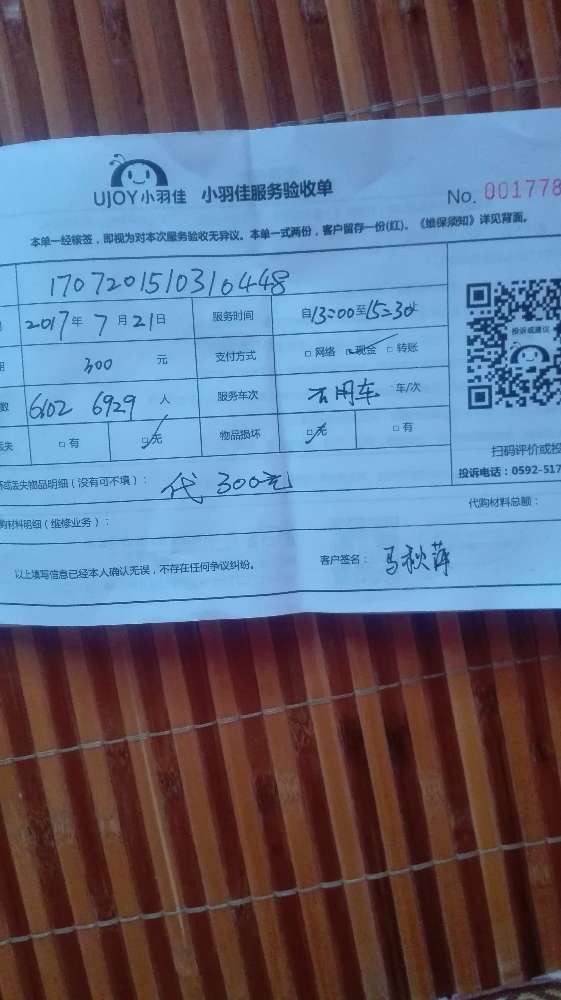 UJOY小羽佳 小羽佳服务验收单 No. 001778
本单一经核签，即视为对本次服务验收无异议。本单一式两份，客户留存一份(红)。《维保须知》详见背面。
1707201510316448
2017年7月21日 服务时间 自13:00至15:30止
300 元 支付方式 □网络 ☑现金 □转账
6102 6929 人 服务车次 不用车 车/次
丢失 □有 ☑无 物品损坏 ☑无 □有
投诉或建议
扫码评价或投
投诉电话：0592-517
坏或丢失物品明细（没有可不填）： 代 300元
购材料明细（维修业务）： 代购材料总额：
以上填写信息已经本人确认无误，不存在任何争议纠纷。 客户签名： 马秋萍